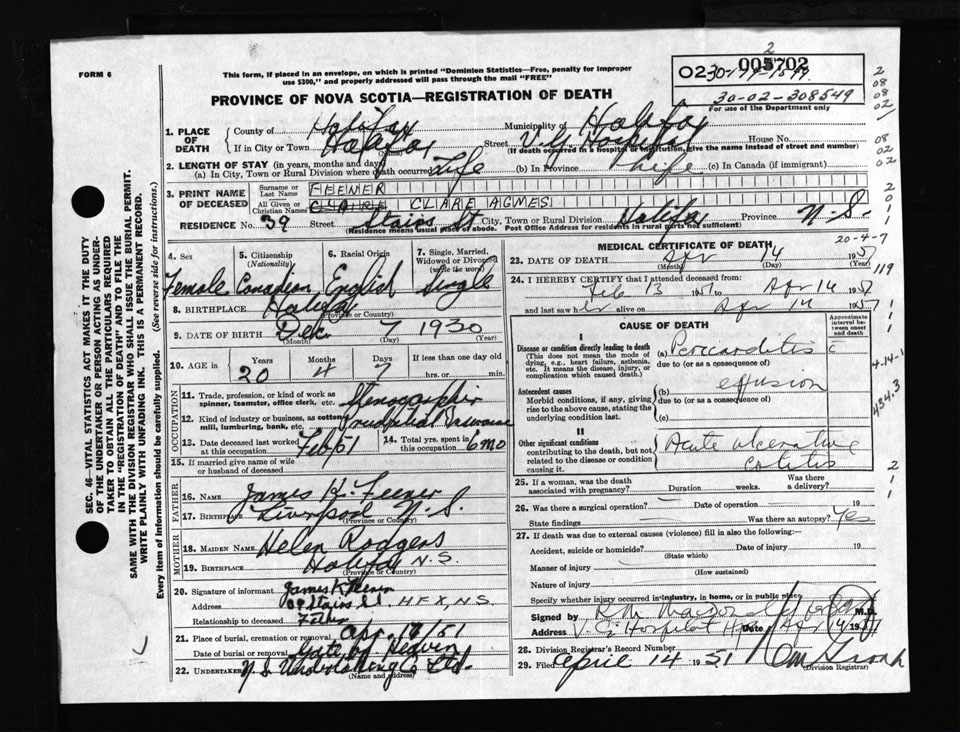 FORM 6
This form, if placed in an envelope, on which is printed "Dominion Statistics—Free, penalty for improper
use $300," and properly addressed will pass through the mail "FREE"
PROVINCE OF NOVA SCOTIA—REGISTRATION OF DEATH
2
005702
30-02-308549
For use of the Department only
SEC. 46—VITAL STATISTICS ACT MAKES IT THE DUTY
OF THE UNDERTAKER OR PERSON ACTING AS UNDER-
TAKER TO OBTAIN ALL THE PARTICULARS REQUIRED
IN THE "REGISTRATION OF DEATH" AND TO FILE THE
SAME WITH THE DIVISION REGISTRAR WHO SHALL ISSUE THE BURIAL PERMIT.
WRITE PLAINLY WITH UNFADING INK. THIS IS A PERMANENT RECORD.
Every item of information should be carefully supplied. (See reverse side for instructions.)
1. PLACE OF DEATH
County of Halifax Municipality of Halifax
If in City or Town Halifax (Name) Street V.G. Hospital House No.
(If death occurred in a hospital or institution, give the name instead of street and number)
2. LENGTH OF STAY (in years, months and days)
(a) In City, Town or Rural Division where death occurred Life (b) In Province Life (c) In Canada (if immigrant)
3. PRINT NAME OF DECEASED
Surname or Last Name FEENER
All Given or Christian Names CLAIRE CLARE AGMES
RESIDENCE No. 39 Street Stairs St City, Town or Rural Division Halifax Province N.S.
(Residence means usual place of abode. Post Office Address for residents in rural parts not sufficient)
4. Sex
Female
5. Citizenship
(Nationality)
Canadian
6. Racial Origin
English
7. Single, Married,
Widowed or Divorced
(write the word)
Single
8. BIRTHPLACE Halifax
(Province or Country)
9. DATE OF BIRTH Dec 7 1930
(Month) (Day) (Year)
10. AGE in
Years Months Days If less than one day old
20 4 7 hrs. or min.
OCCUPATION
11. Trade, profession, or kind of work as
spinner, teamster, office clerk, etc. Stenographer
12. Kind of industry or business, as cotton
mill, lumbering, bank, etc. Prudential Insurance
13. Date deceased last worked
at this occupation Feb/51
14. Total yrs. spent in
this occupation 6 mo
15. If married give name of wife
or husband of deceased
FATHER
16. NAME James K. Feener
17. BIRTHPLACE Liverpool N.S.
(Province or Country)
MOTHER
18. MAIDEN NAME Helen Rodgers
19. BIRTHPLACE Halifax N.S.
(Province or Country)
20. Signature of informant James K Feener
Address 39 Stairs St. HFX, N.S.
Relationship to deceased Father
21. Place of burial, cremation or removal
Date of burial or removal
Apr. /51
Gate of Heaven
22. UNDERTAKER N.S. Undertaking Co Ltd.
(Name and address)
MEDICAL CERTIFICATE OF DEATH
20-4-7
23. DATE OF DEATH Apr 14 1951
(Month) (Day) (Year)
119
24. I HEREBY CERTIFY that I attended deceased from:
Feb 13 1951 to Apr 14 1951
and last saw her alive on Apr 14 1951
CAUSE OF DEATH
Approximate
interval be-
tween onset
and death
I
Disease or condition directly leading to death
(This does not mean the mode of
dying, e.g., heart failure, asthenia,
etc. It means the disease, injury, or
complication which caused death.)
(a) Pericarditis c
due to (or as a consequence of)
effusion
Antecedent causes
Morbid conditions, if any, giving
rise to the above cause, stating the
underlying condition last.
(b)
due to (or as a consequence of)
(c)
II
Other significant conditions
contributing to the death, but not
related to the disease or condition
causing it.
Acute ulcerative
colitis
4-14-1
434.3
25. If a woman, was the death
associated with pregnancy? Duration weeks. Was there
a delivery?
26. Was there a surgical operation? — Date of operation — 19
State findings — Was there an autopsy? Yes
27. If death was due to external causes (violence) fill in also the following:
Accident, suicide or homicide? Date of injury 19
(State which)
Manner of injury
(How sustained)
Nature of injury
Specify whether injury occurred in industry, in home, or in public place
Signed by M.D.
Address V.G. Hospital Hfx Date Apr 14 1951
28. Division Registrar's Record Number
29. Filed April 14 1951
(Division Registrar)